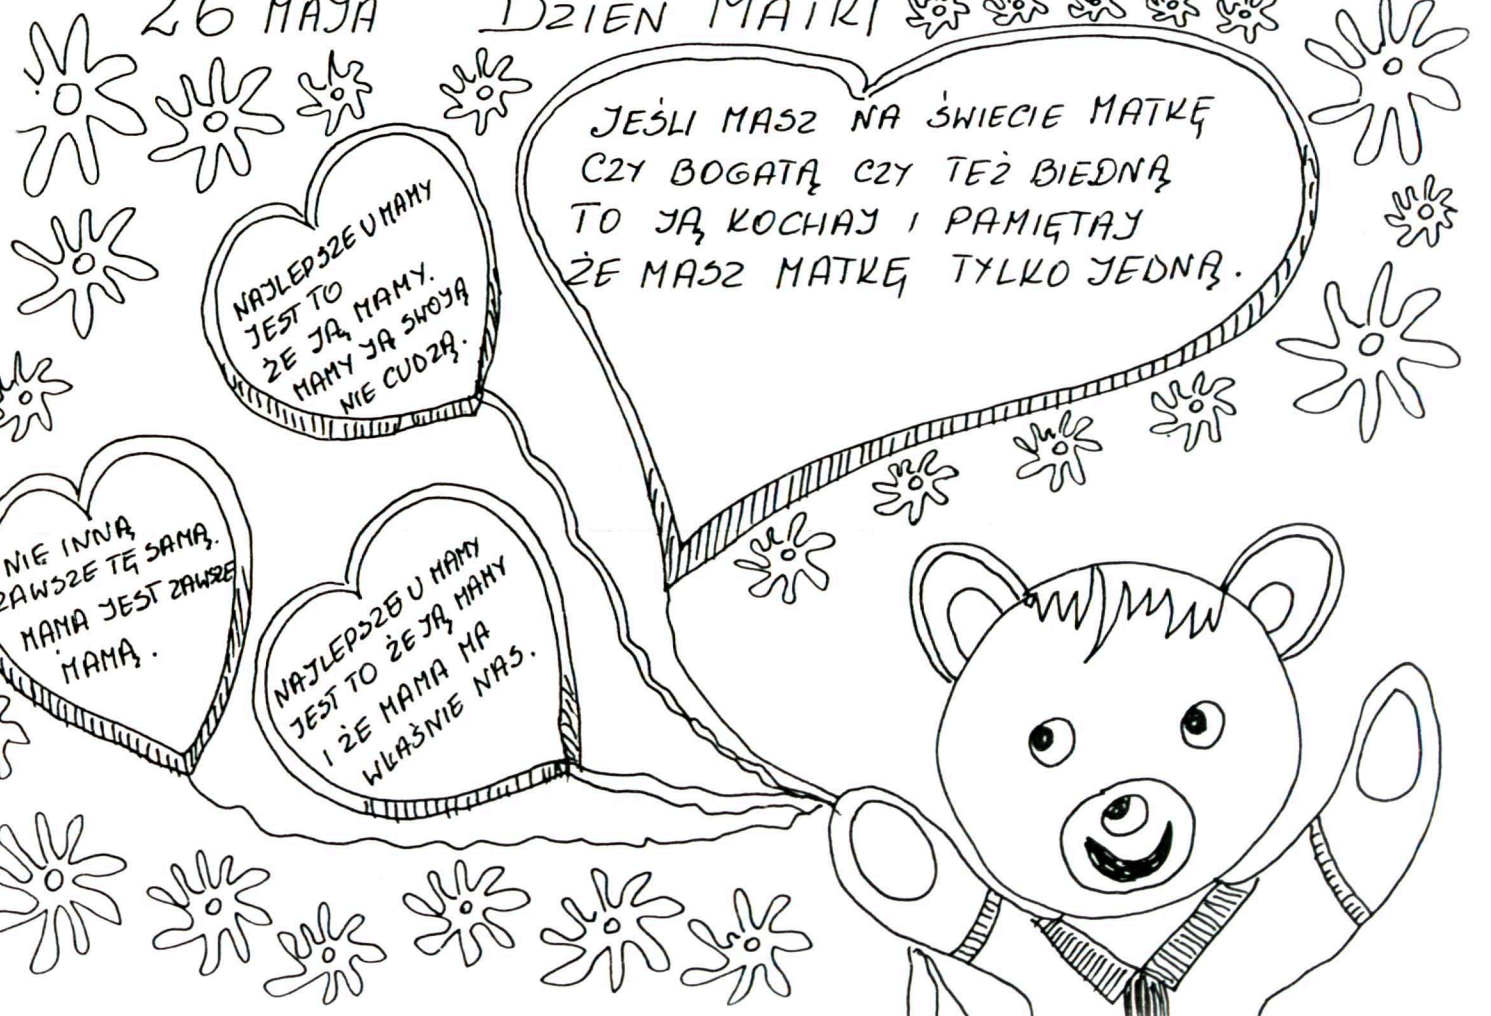 26 MAJA DZIEŃ MATKI
JEŚLI MASZ NA ŚWIECIE MATKĘ
CZY BOGATĄ CZY TEŻ BIEDNĄ
TO JĄ KOCHAJ I PAMIĘTAJ
ŻE MASZ MATKĘ TYLKO JEDNĄ.
NAJLEPSZE U MAMY
JEST TO
ŻE JĄ MAMY.
MAMY JĄ SWOJĄ
NIE CUDZĄ.
NIE INNĄ
ZAWSZE TĘ SAMĄ.
MAMA JEST ZAWSZE
MAMĄ.
NAJLEPSZE U MAMY
JEST TO ŻE JĄ MAMY
I ŻE MAMA MA
WŁAŚNIE NAS.